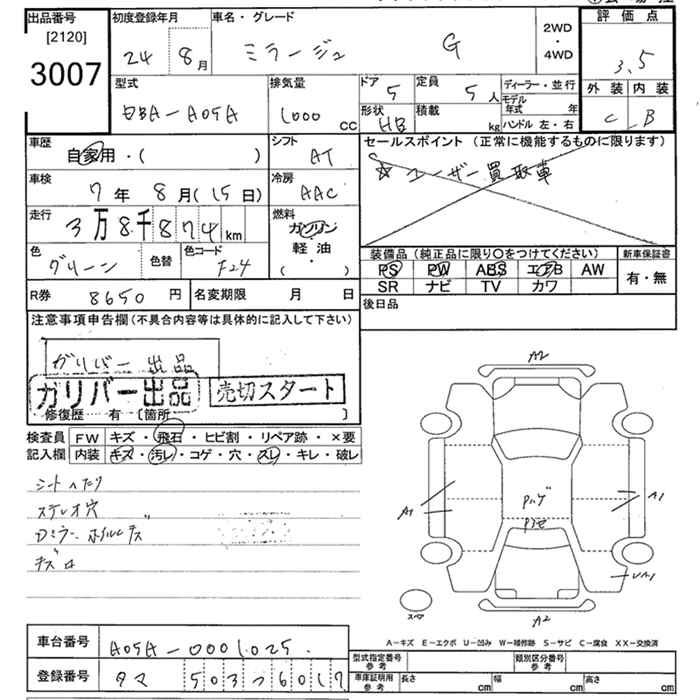 出品番号
[2120]
3007
初度登録年月
24 8月
車名・グレード
ミラージュ G
2WD
・
4WD
評価点
3.5
外装 内装
C B
型式
DBA-A05A
排気量
1000 cc
ドア
5
定員
5 人
形状
HB
積載
kg
ディーラー・並行
モデル年式 年
ハンドル 左・右
車歴
自家用・( )
シフト
AT
セールスポイント (正常に機能するものに限ります)
ユーザー買取車
車検
7年 8月 (15日)
冷房
AAC
走行
3万8千874km
燃料
ガソリン
軽油
( ・ )
色
グリーン
色替
色コード
F24
装備品 (純正品に限り○をつけてください)
PS PW ABS エアB AW
SR ナビ TV カワ
新車保証書
有・無
R券 8650 円
名変期限 月 日
後日品
注意事項申告欄 (不具合内容等は具体的に記入して下さい)
ガリバー出品
ガリバー出品 売切スタート
修復歴 有 〔箇所 〕
検査員
記入欄
FW キズ・飛石・ヒビ割・リペア跡・×要
内装 キズ・汚レ・コゲ・穴・スレ・キレ・破レ
シートヘタリ
ステレオ穴
Dミラー ホイルキズ
A2
A1
A1
A2
スペア
A-キズ E-エクボ U-凹み W-補修跡 S-サビ C-腐食 XX-交換済
車台番号 A05A-0001025
登録番号 タマ 503 つ 6017
型式指定番号
参考
類別区分番号
参考
車庫証明用
参考
長さ cm
幅 cm
高さ cm